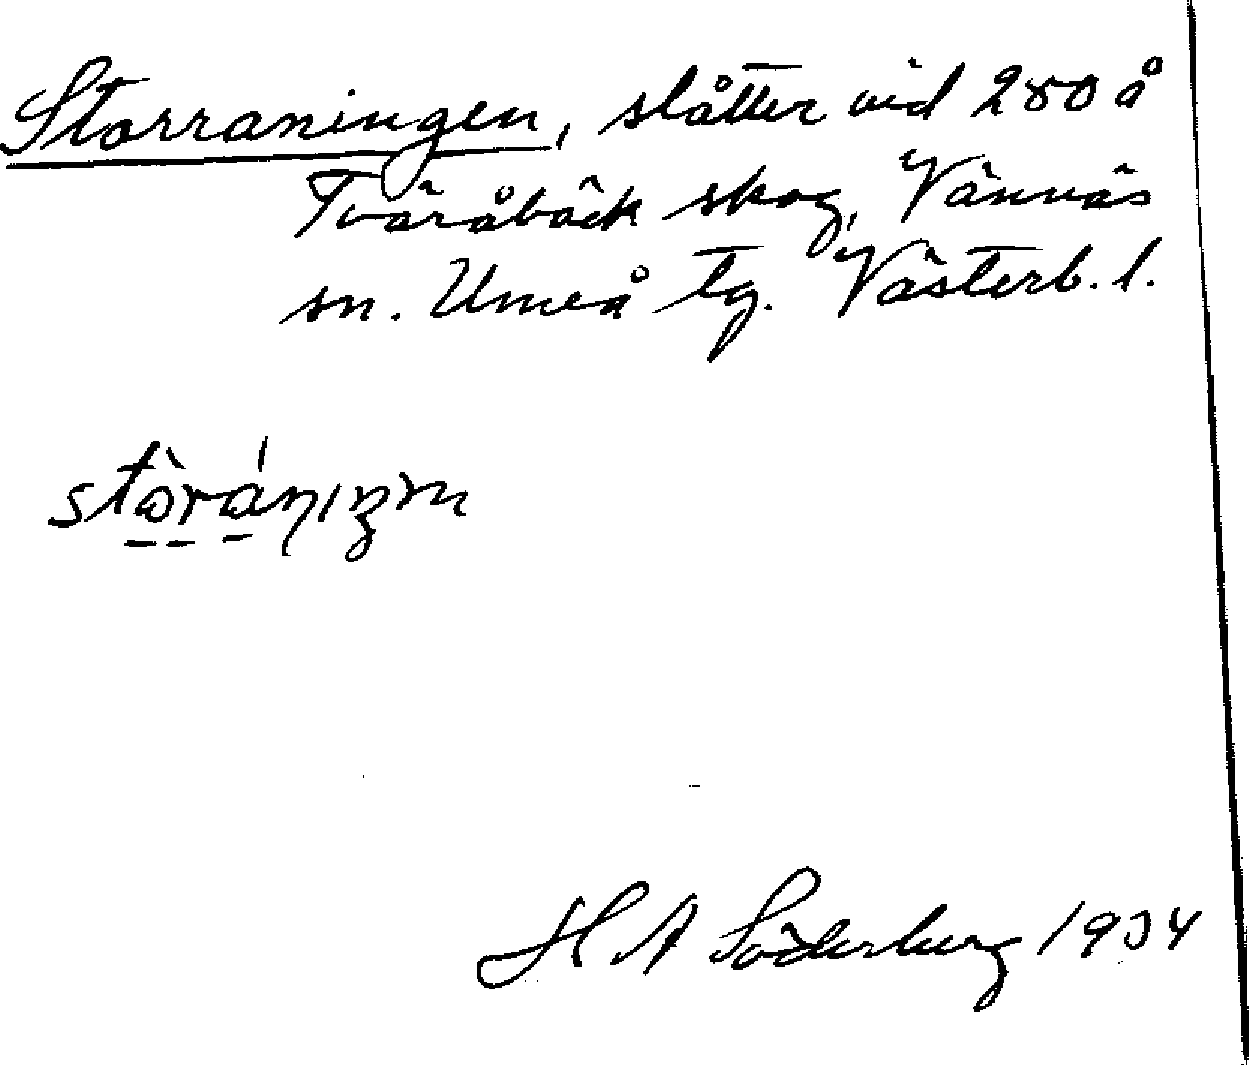 Storraningen, slåtter vid 280 å
Tväråbäck skog, Vännäs
sn. Umeå tg. Västerb. l.
H A Söderberg 1934